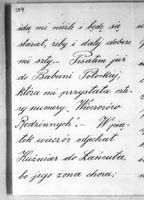 184
idą mi nieźle i będę się
starał, żeby i dalej dobrze
mi szły. – Pisałem już
do Babuni Potockiej,
która mi przysłała czte-
ry numery „Wieczorów
Rodzinnych”. – W pią-
tek wieczór odjechał
Kuźniar do Łańcuta,
bo jego żona chora;